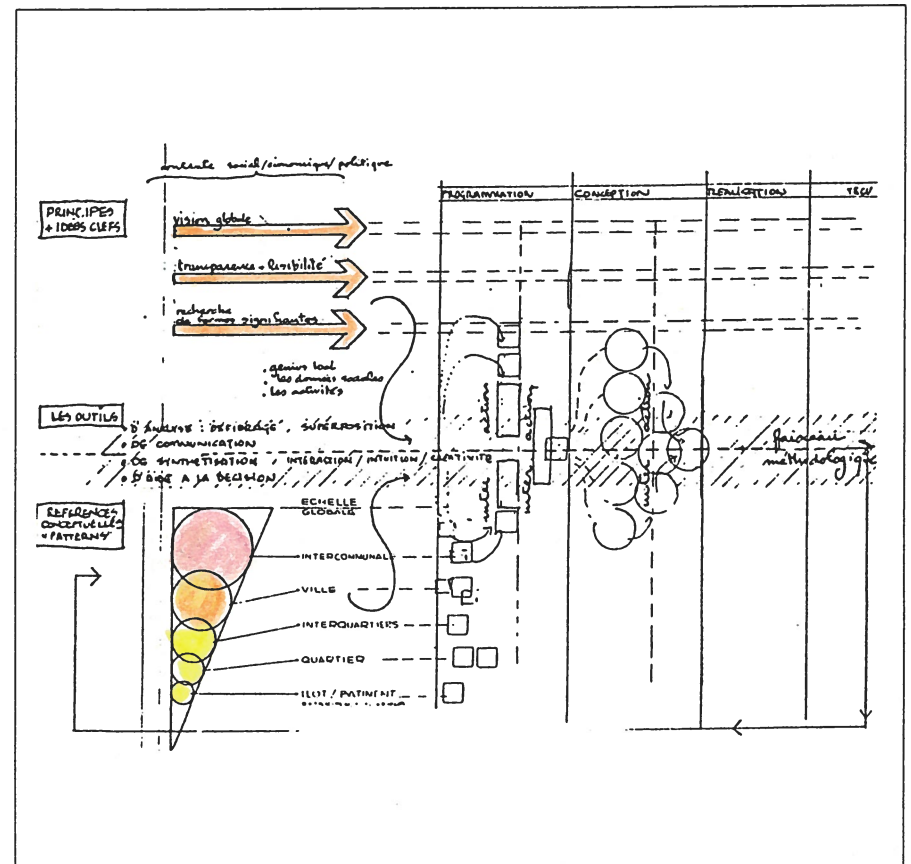 contexte social/économique/politique
PROGRAMMATION
CONCEPTION
REALISATION
PRINCIPES
+ IDEES CLEFS
vision globale
transparence + lisibilité
recherche
de formes signifiantes
. genius loci
. les données sociales
. les activités
LES OUTILS
• D'ANALYSE : "DEFIBRAGE", SUPERPOSITION
• DE COMMUNICATION
• DE SYNTHETISATION / INTERACTION / INTUITION / CREATIVITE
• D'AIDE A LA DECISION
inter action
inter action
inter action
faisceau
méthodologique
REFERENCES
CONCEPTUELLES
"PATTERNS"
ECHELLE
GLOBALE
INTERCOMMUNAL
VILLE
INTERQUARTIERS
QUARTIER
ILOT / BATIMENT